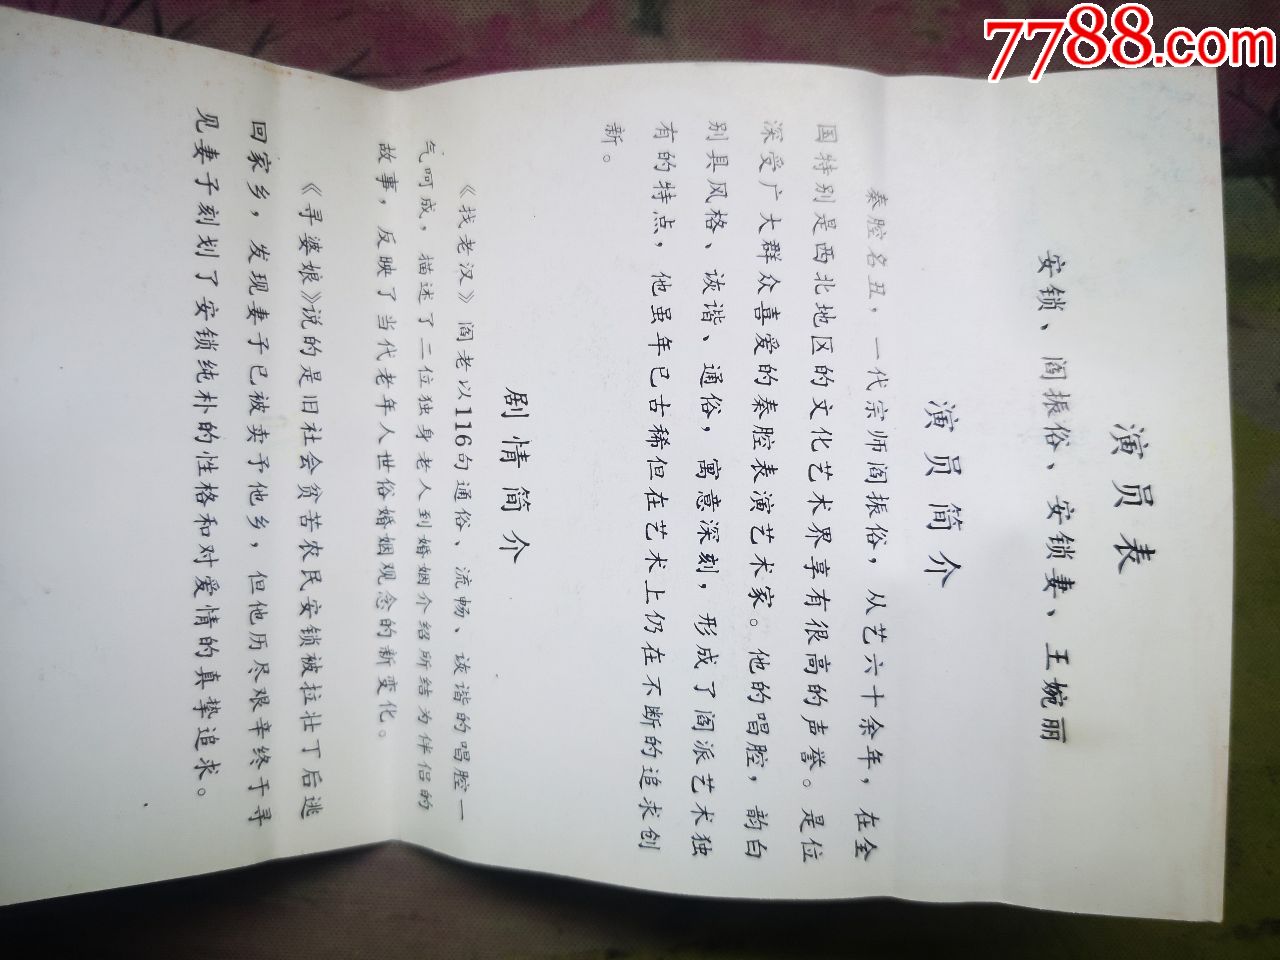 7788.com
演员表
安锁、阎振俗、安锁妻、王婉丽
演员简介
秦腔名丑，一代宗师阎振俗，从艺六十余年，在全
国特别是西北地区的文化艺术界享有很高的声誉。是位
深受广大群众喜爱的秦腔表演艺术家。他的唱腔，韵白
别具风格、诙谐、通俗，寓意深刻，形成了阎派艺术独
有的特点，他虽年已古稀但在艺术上仍在不断的追求创
新。
剧情简介
《找老汉》阎老以116句通俗、流畅、诙谐的唱腔一
气呵成，描述了二位独身老人到婚姻介绍所结为伴侣的
故事，反映了当代老年人世俗婚姻观念的新变化。
《寻婆娘》说的是旧社会贫苦农民安锁被拉壮丁后逃
回家乡，发现妻子已被卖予他乡，但他历尽艰辛终于寻
见妻子刻划了安锁纯朴的性格和对爱情的真挚追求。